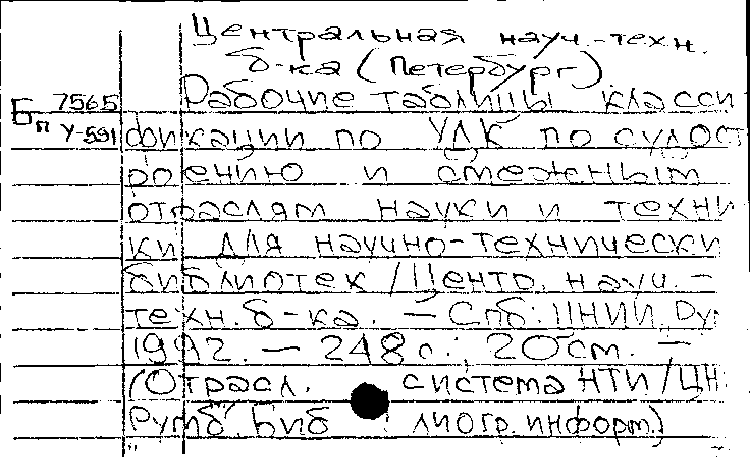 Центральная науч.-техн.
б-ка (Петербург)
Б 7565 Рабочие таблицы класси
п У-591 фикации по УДК по судост
роению и смежным
отраслям науки и техни
ки для научно-технически
библиотек / Центр. науч. -
техн. б-ка. - Спб: ЦНИИ "Ру
1992. - 248 с.; 20 см. -
(Отрасл. система НТИ / ЦН
Румб. Биб лиогр. информ.)